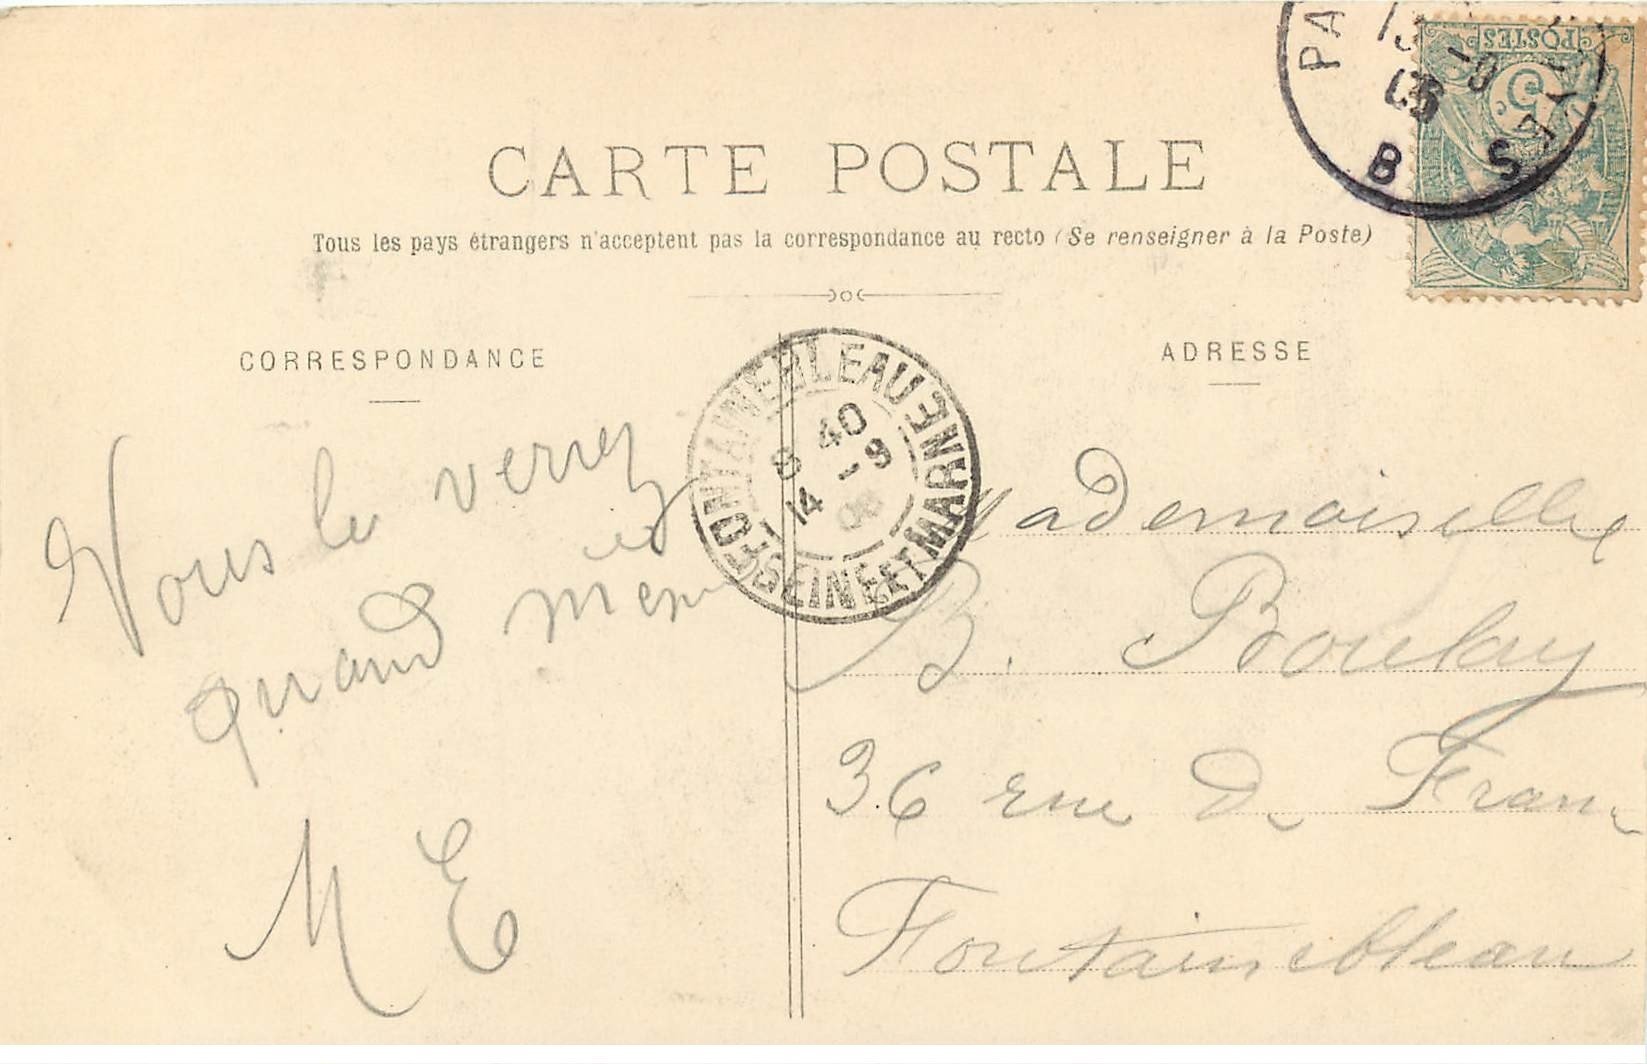 CARTE POSTALE
Tous les pays étrangers n'acceptent pas la correspondance au recto (Se renseigner à la Poste)
CORRESPONDANCE
ADRESSE
Vous le verrez
quand même
M E
Mademoiselle
B. Boulay
36 rue de Fran
Fontainebleau
FONTAINEBLEAU
8 40
14 - 9
06
SEINE ET MARNE
PA
13 - 9
06
B S
POSTES
5